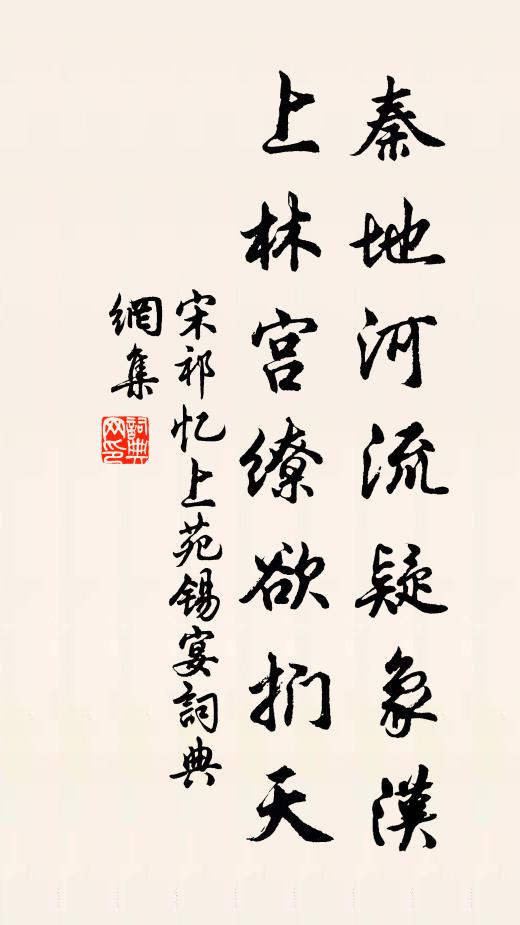 秦地河流疑象漢
上林宫缭欲捫天
宋祁忆上苑锡宴詞典
網集
詞典
网印